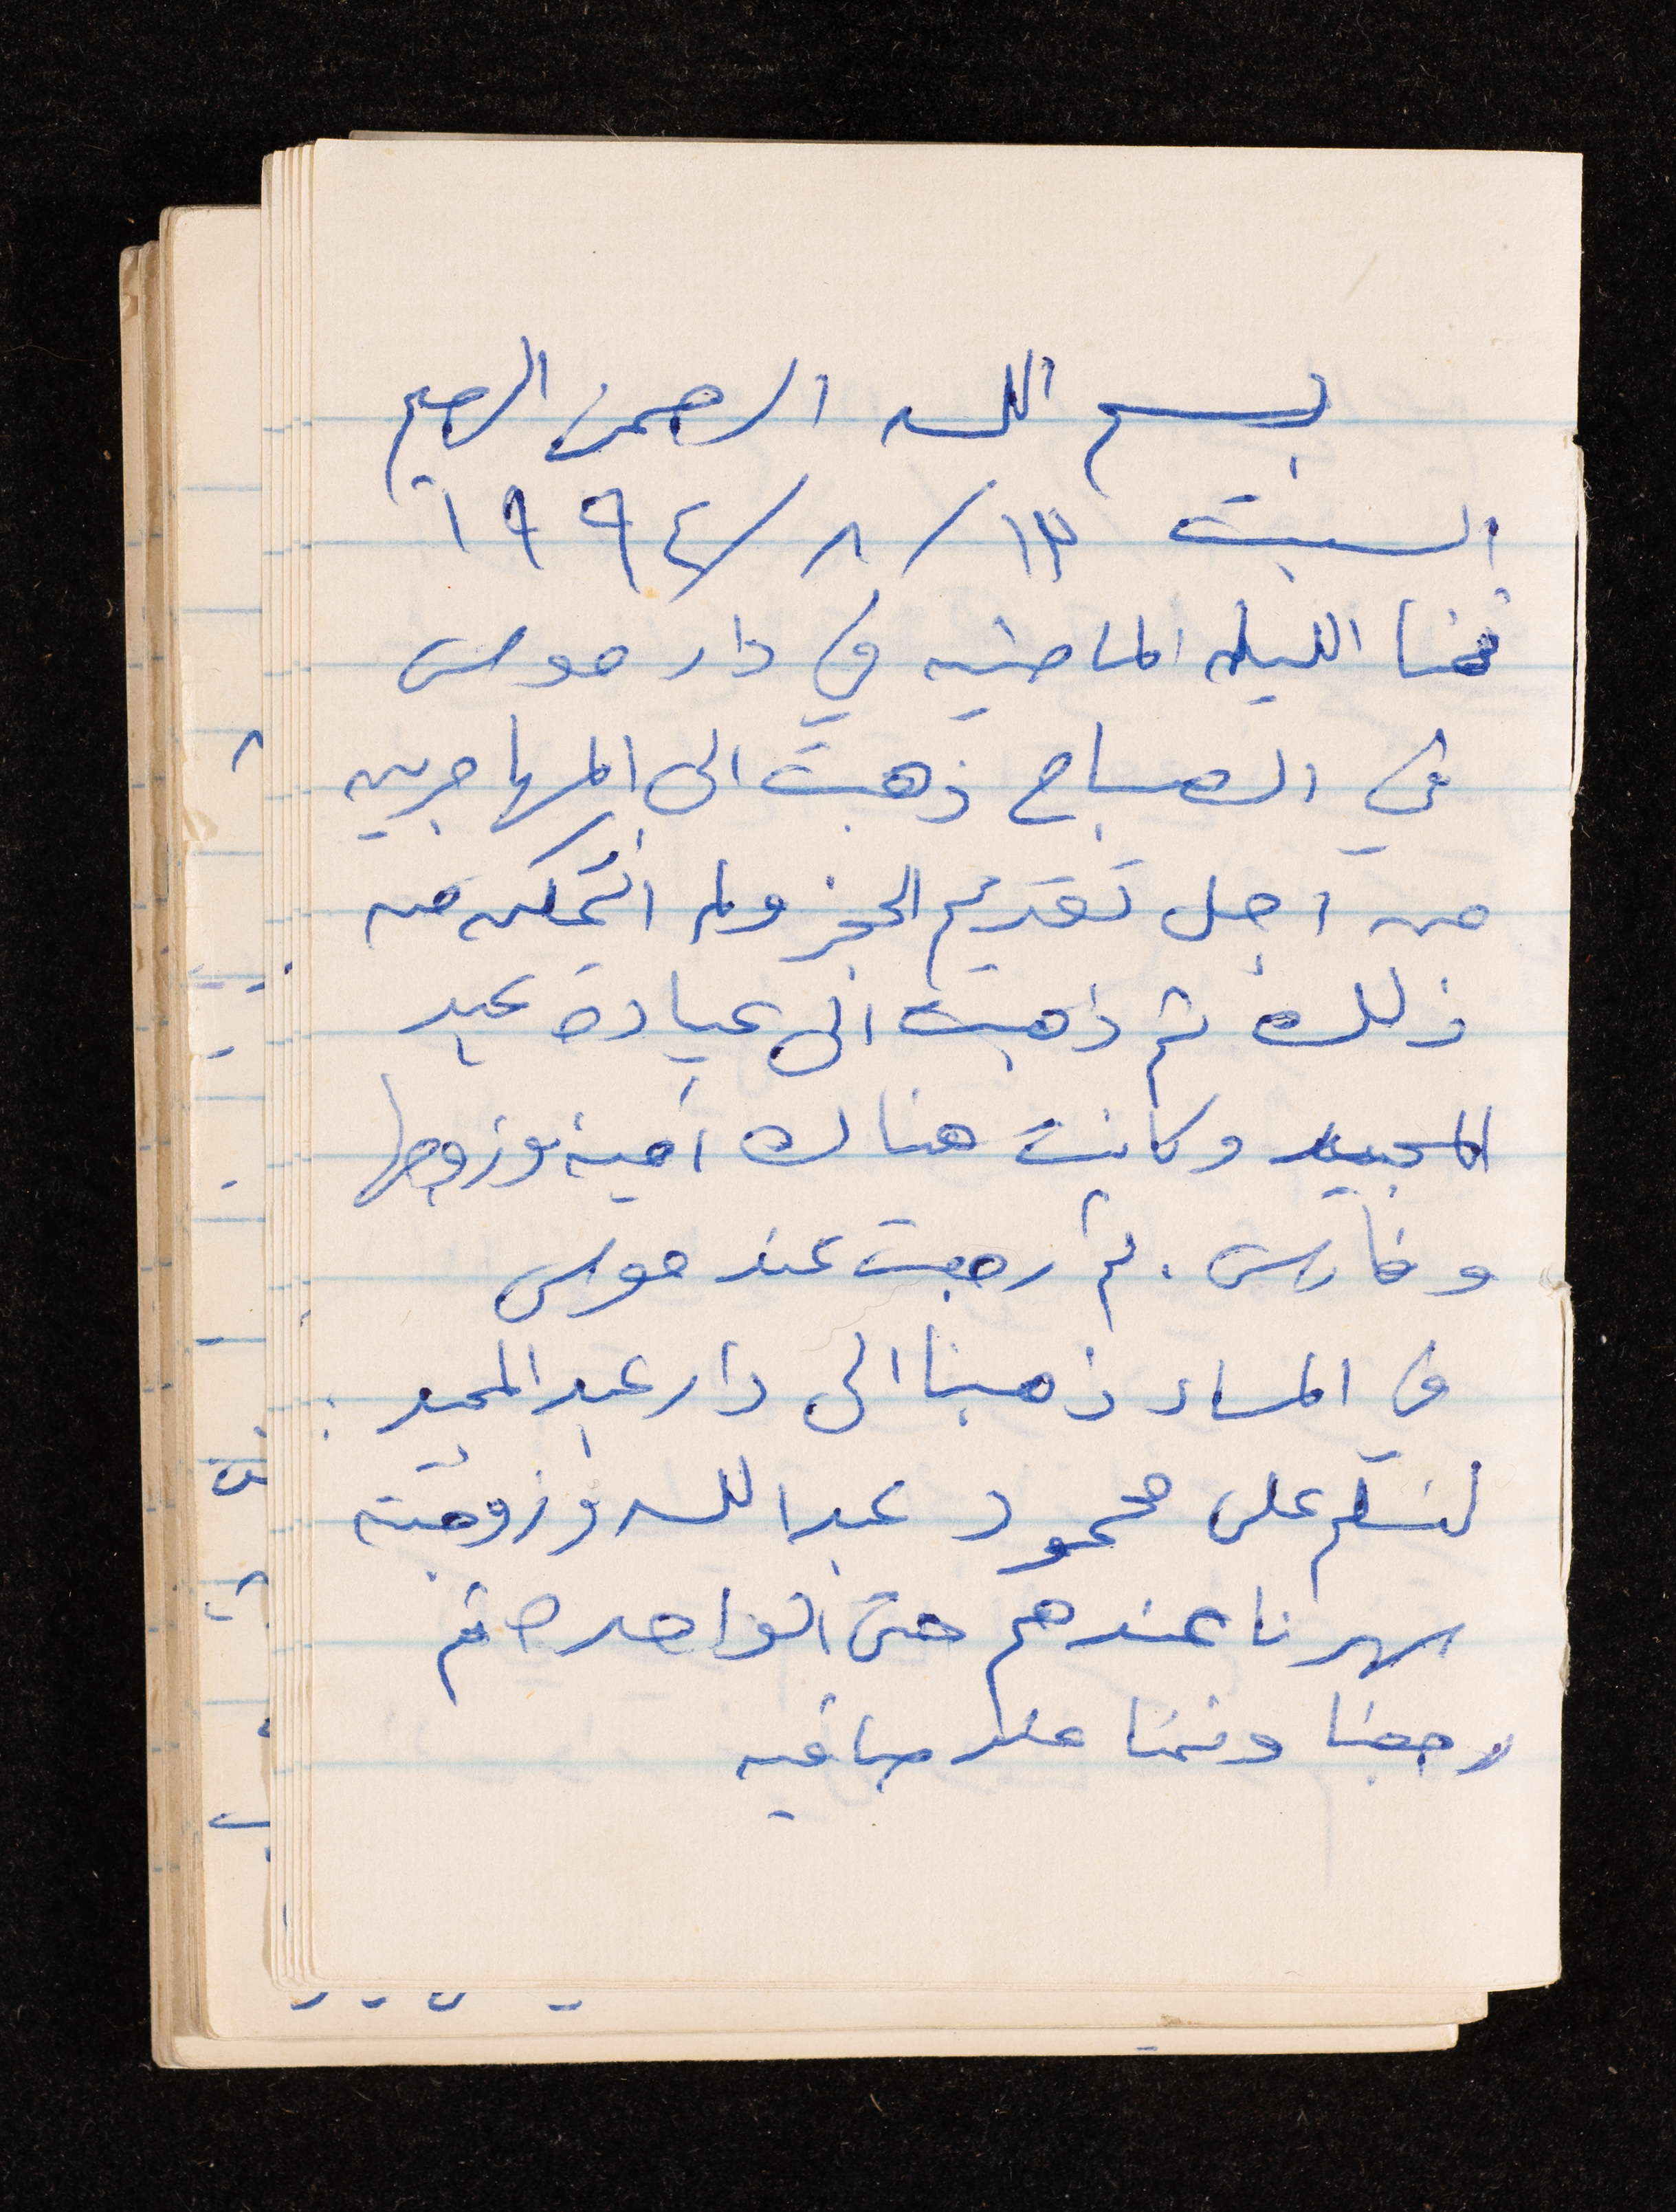 بسم الله الرحمن الرحيم
السبت ١٣/٨/١٩٩٤
نمنا الليله الماضيه في دار موسى
في الصباح ذهبت الى المهاجرين
من اجل تقديم الحجز ولم اتمكن من
ذلك ثم ذهبت الى عيادة عبد
المجيد وكانت هناك امينة وزوجها
وفارس . ثم رجعت عند موسى
في المساء ذهبنا الى دار عبد المجيد
لنسلم على محمود عبد الله وزوجته
سهرنا عندهم حتى الواحدة ثم
رجعنا ونمنا عند صافيه